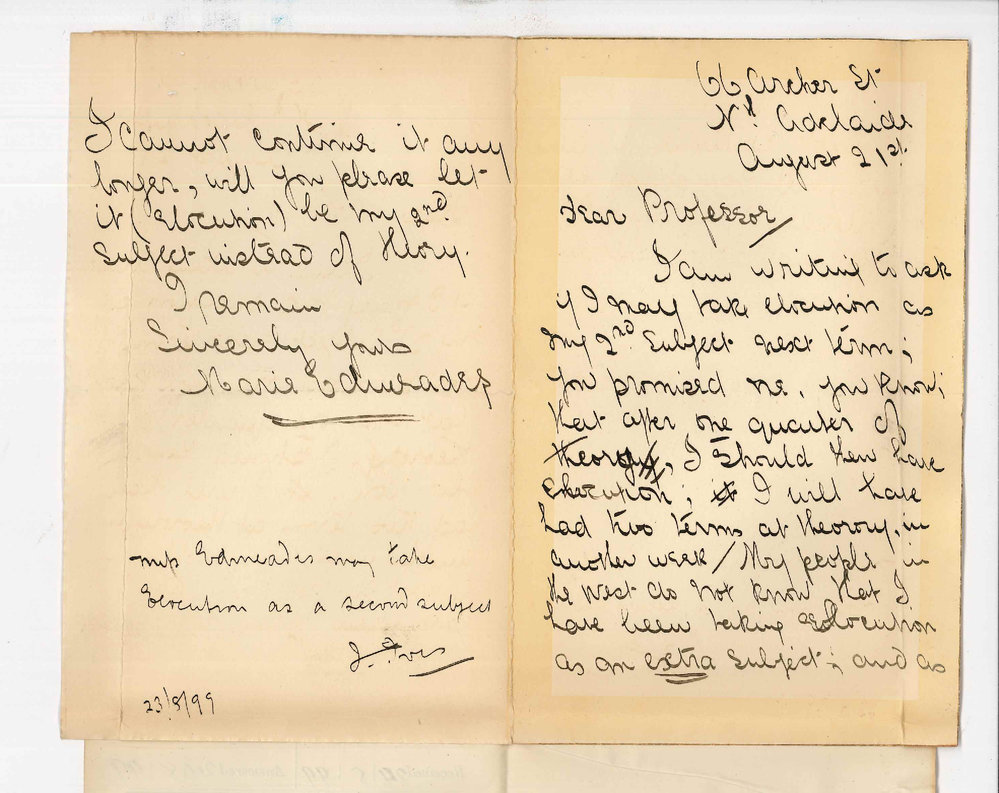 66 Archer St
Nth Adelaide
August 21st
Dear Professor,
I am writing to ask
if I may take elocution as
my 2nd Subject next term;
you promised me, you know,
that after one quarter of
theory, I should then have
elocution; I will have
had two terms at theorory, in
another week / My people in
the West do not know that I
have been taking Elocution
as an extra subject; and as
I cannot continue it any
longer, will you please let
it (Elocution) be my 2nd
Subject instead of theory.
I remain
Sincerely yours
Marie Edmeades
Miss Edmeades may take
Elocution as a second subject
J. Ives
23/8/99